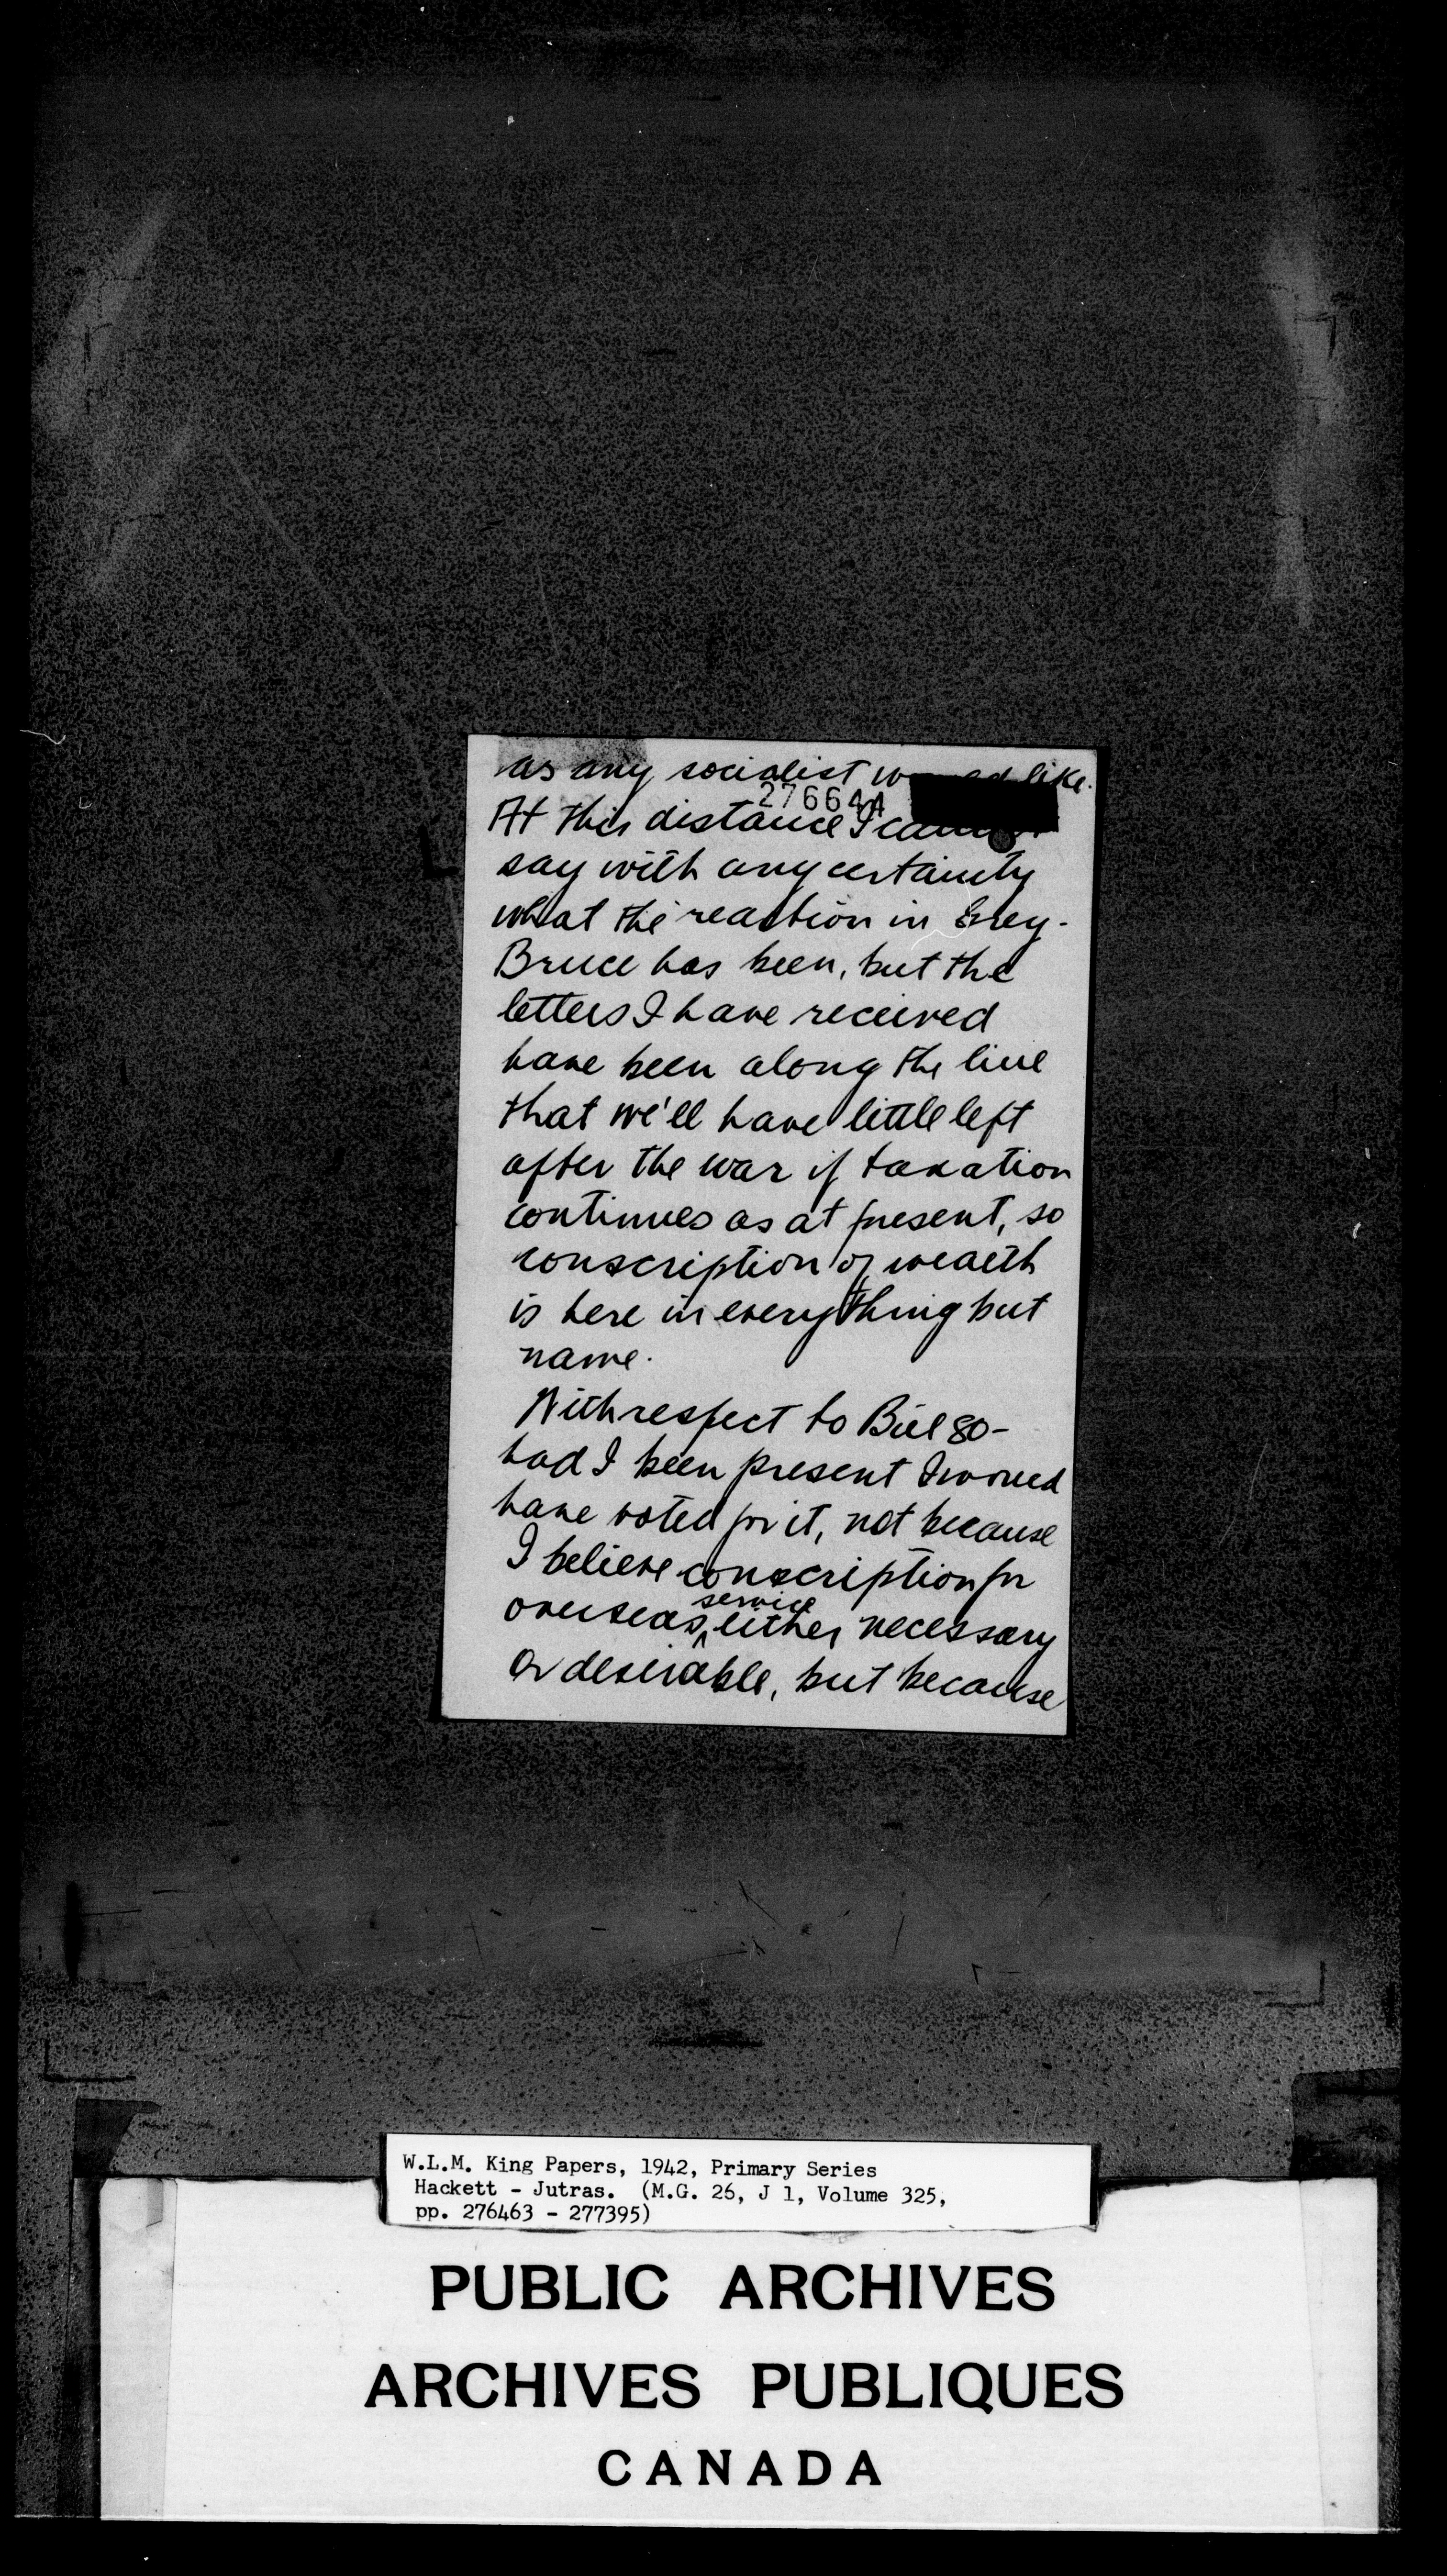 as any socialist would like.
276644
At this distance I cannot
say with any certainty
what the reaction in Grey-
Bruce has been, but the
letters I have received
have been along the line
that we'll have little left
after the war if taxation
continues as at present, so
conscription of wealth
is here in everything but
name.
With respect to Bill 80-
had I been present I would
have voted for it, not because
I believe conscription for
service
overseas ^ either necessary
or desirable, but because
W.L.M. King Papers, 1942, Primary Series
Hackett - Jutras. (M.G. 26, J 1, Volume 325,
pp. 276463 - 277395)
PUBLIC ARCHIVES
ARCHIVES PUBLIQUES
CANADA